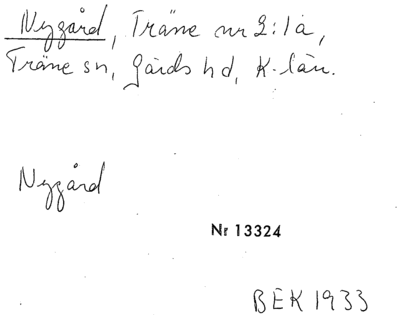 Nygård, Träne nr 2:1a,
Träne sn, Gärds hd, K-län.
Nygård
Nr 13324
BEK 1933